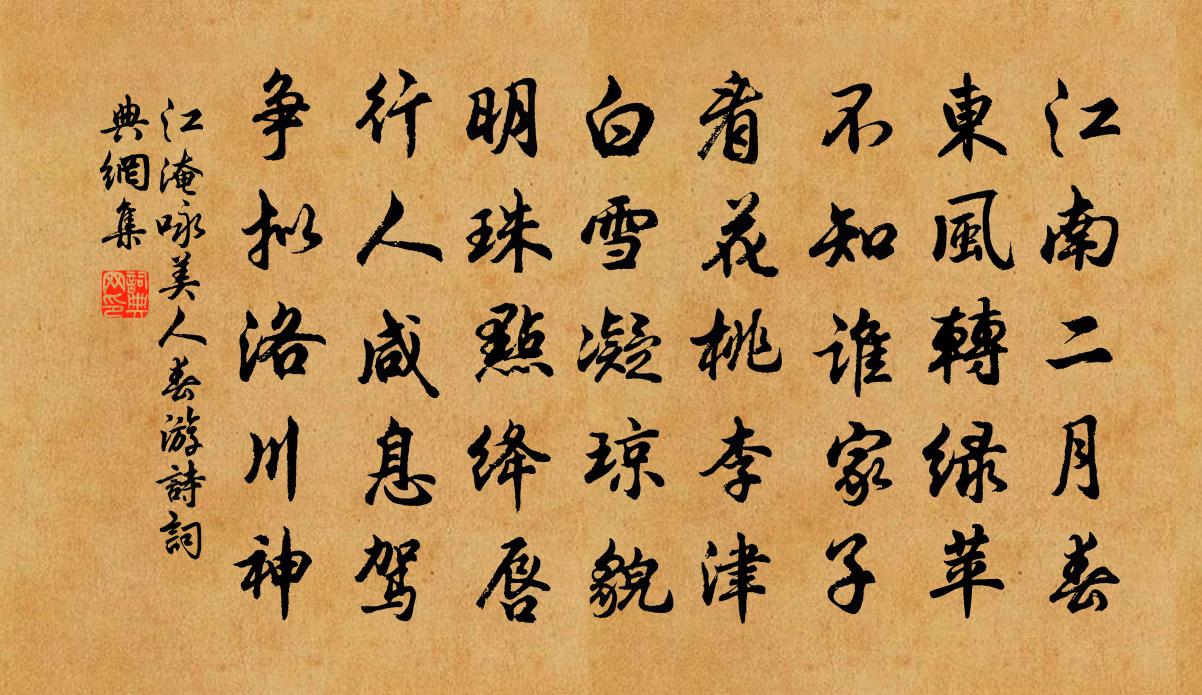 江南二月春
東風轉緑苹
不知誰家子
看花桃李津
白雪凝瓊貌
明珠點絳唇
行人咸息駕
争拟洛川神
江淹咏美人春游詩詞
典網集
詞典
网印